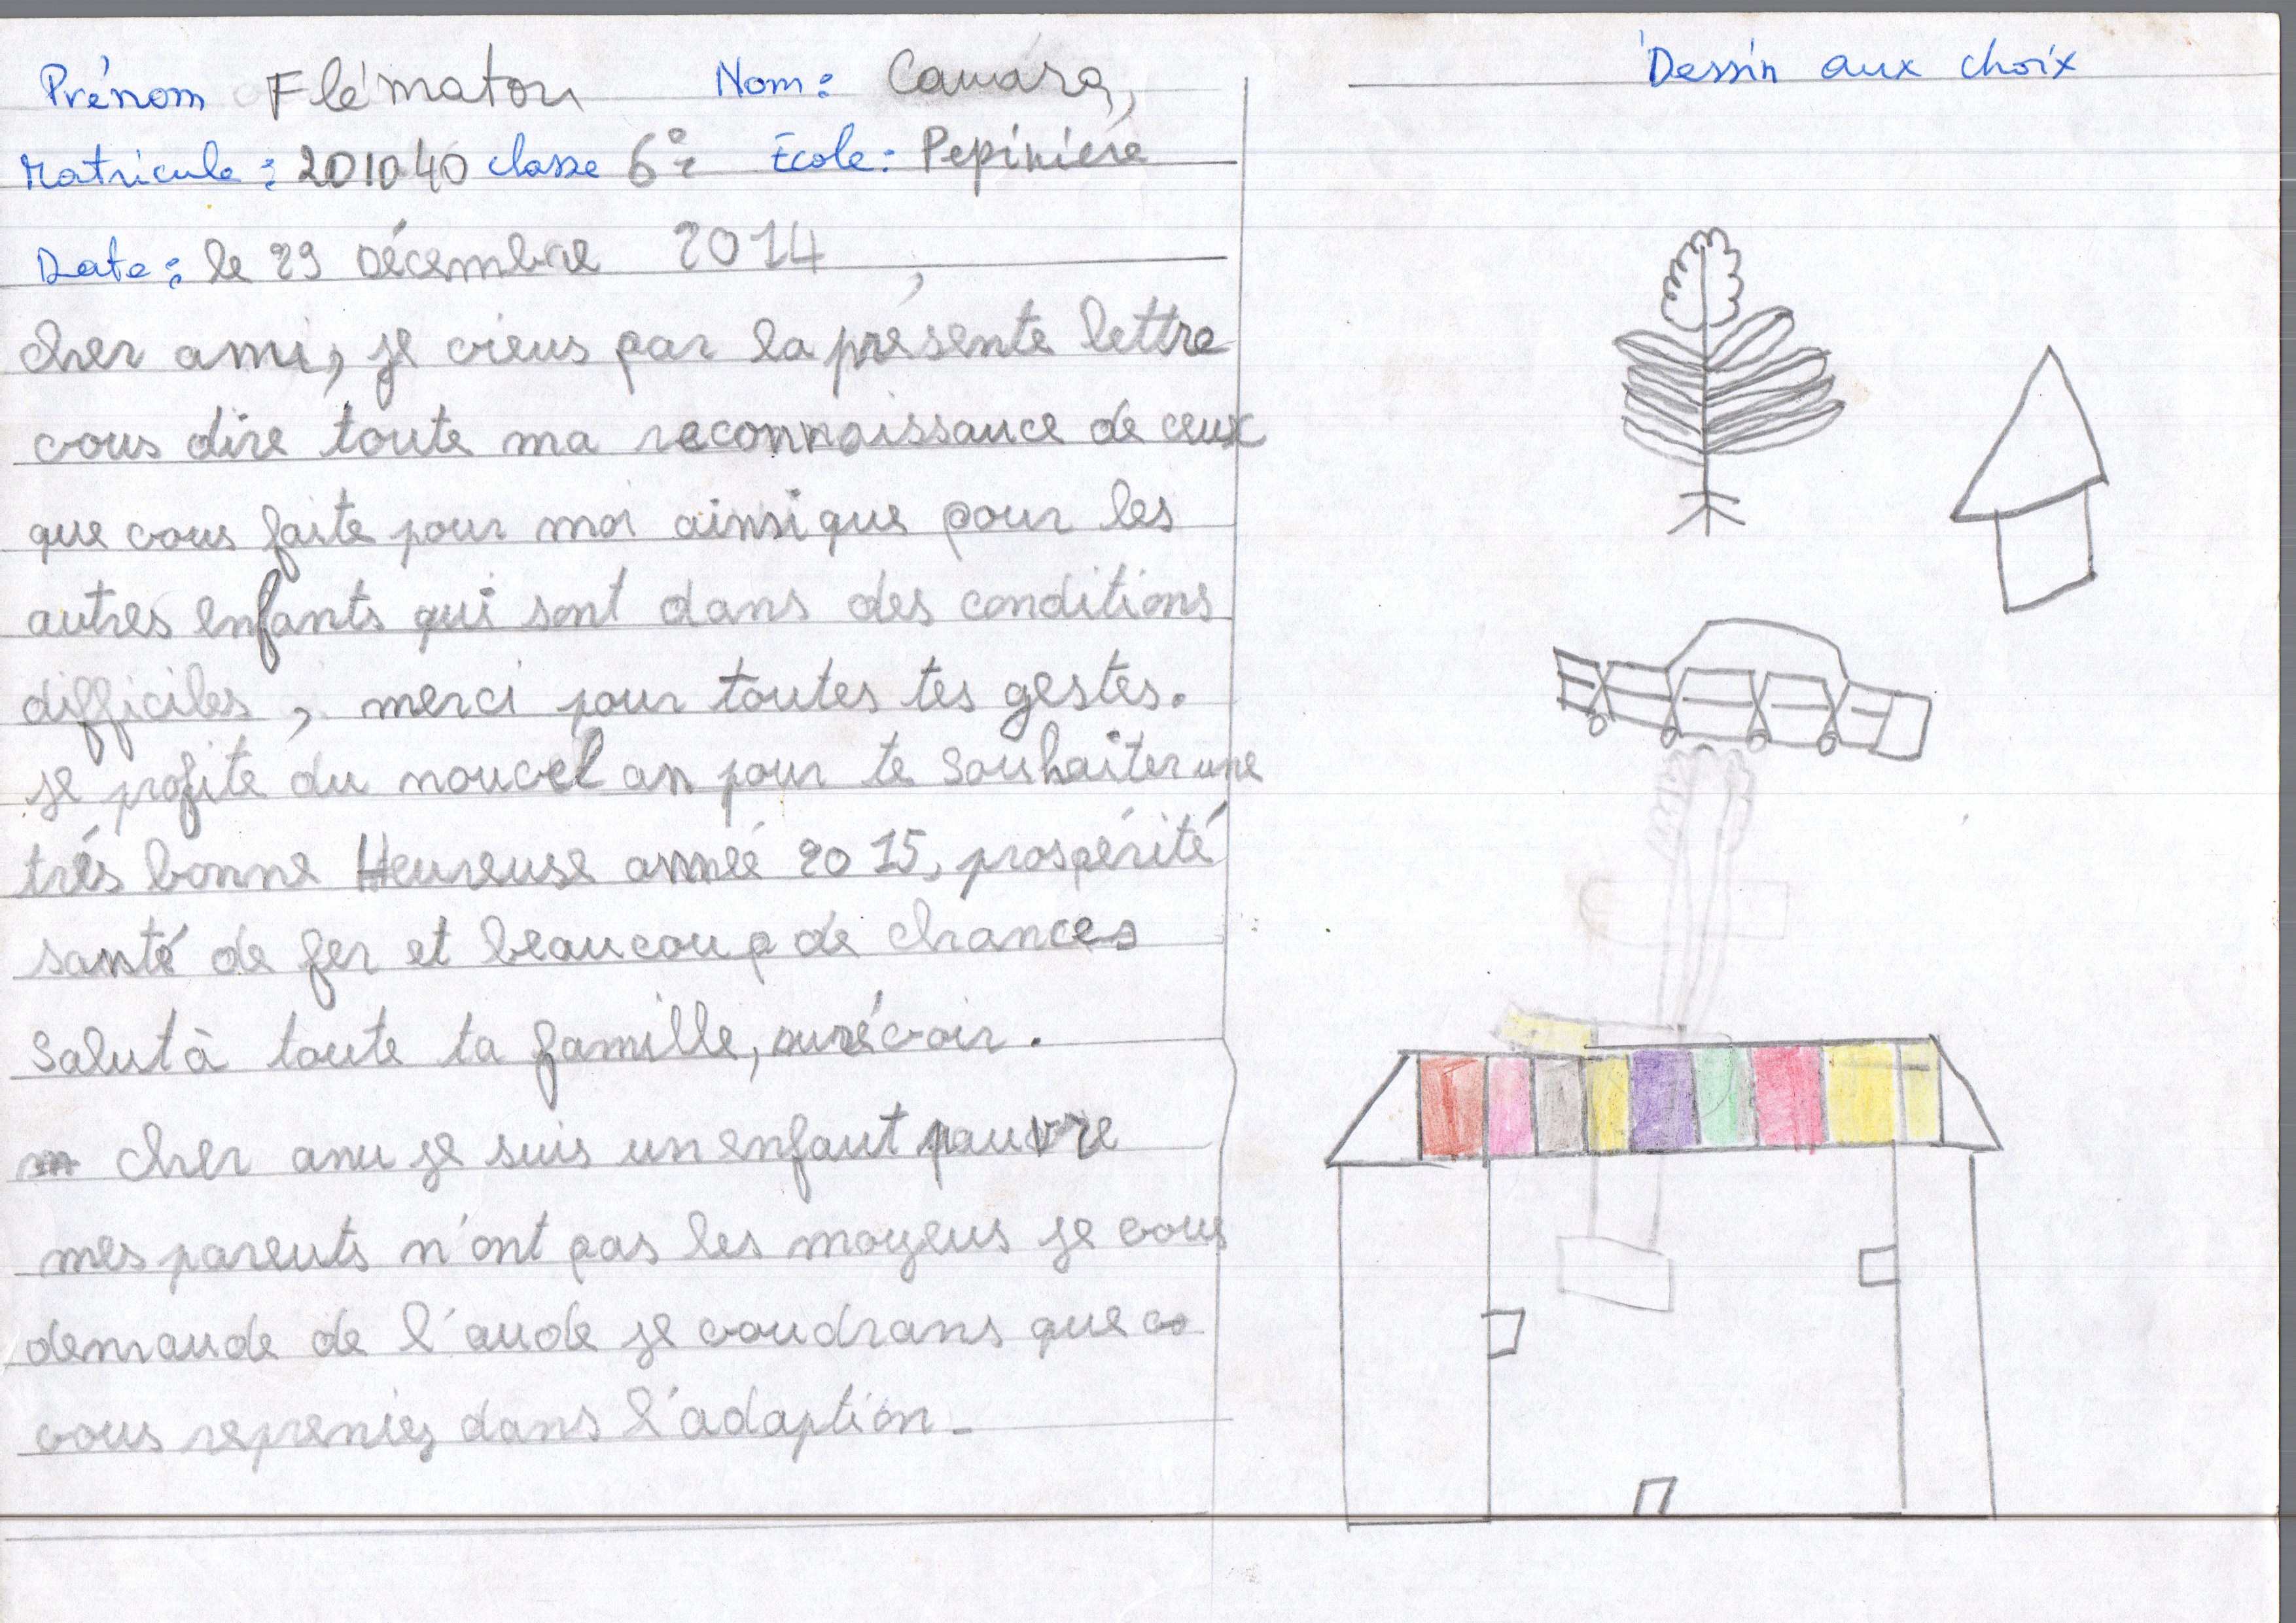 Prénom Flématou Nom: Camara,
Matricule: 201040 classe 6è Ecole: Pepiniére
Date: le 29 Décembre 2014,
cher ami, je viens par la présente lettre
vous dire toute ma reconnaissance de ceux
que vous faite pour moi ainsi que pour les
autres enfants qui sont dans des conditions
difficiles, merci pour toutes tes gestes.
je profite du nouvel an pour te souhaiter une
trés bonne Heureuse année 2015, prospérité
santé de fer et beaucoup de chances
salut à toute ta famille, aurévoir.
cher ami je suis un enfant pauvre
mes parents n'ont pas les moyens je vous
demande de l'aide je voudrans que
vous repreniez dans l'adaption_
Dessin aux choix